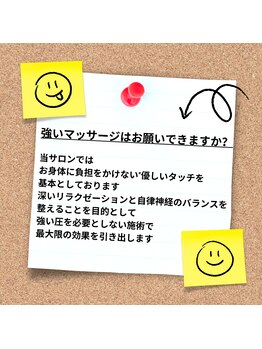 強いマッサージはお願いできますか?
当サロンでは
お身体に負担をかけない“優しいタッチを
基本としております
深いリラクゼーションと自律神経のバランスを
整えることを目的として
強い圧を必要としない施術で
最大限の効果を引き出します